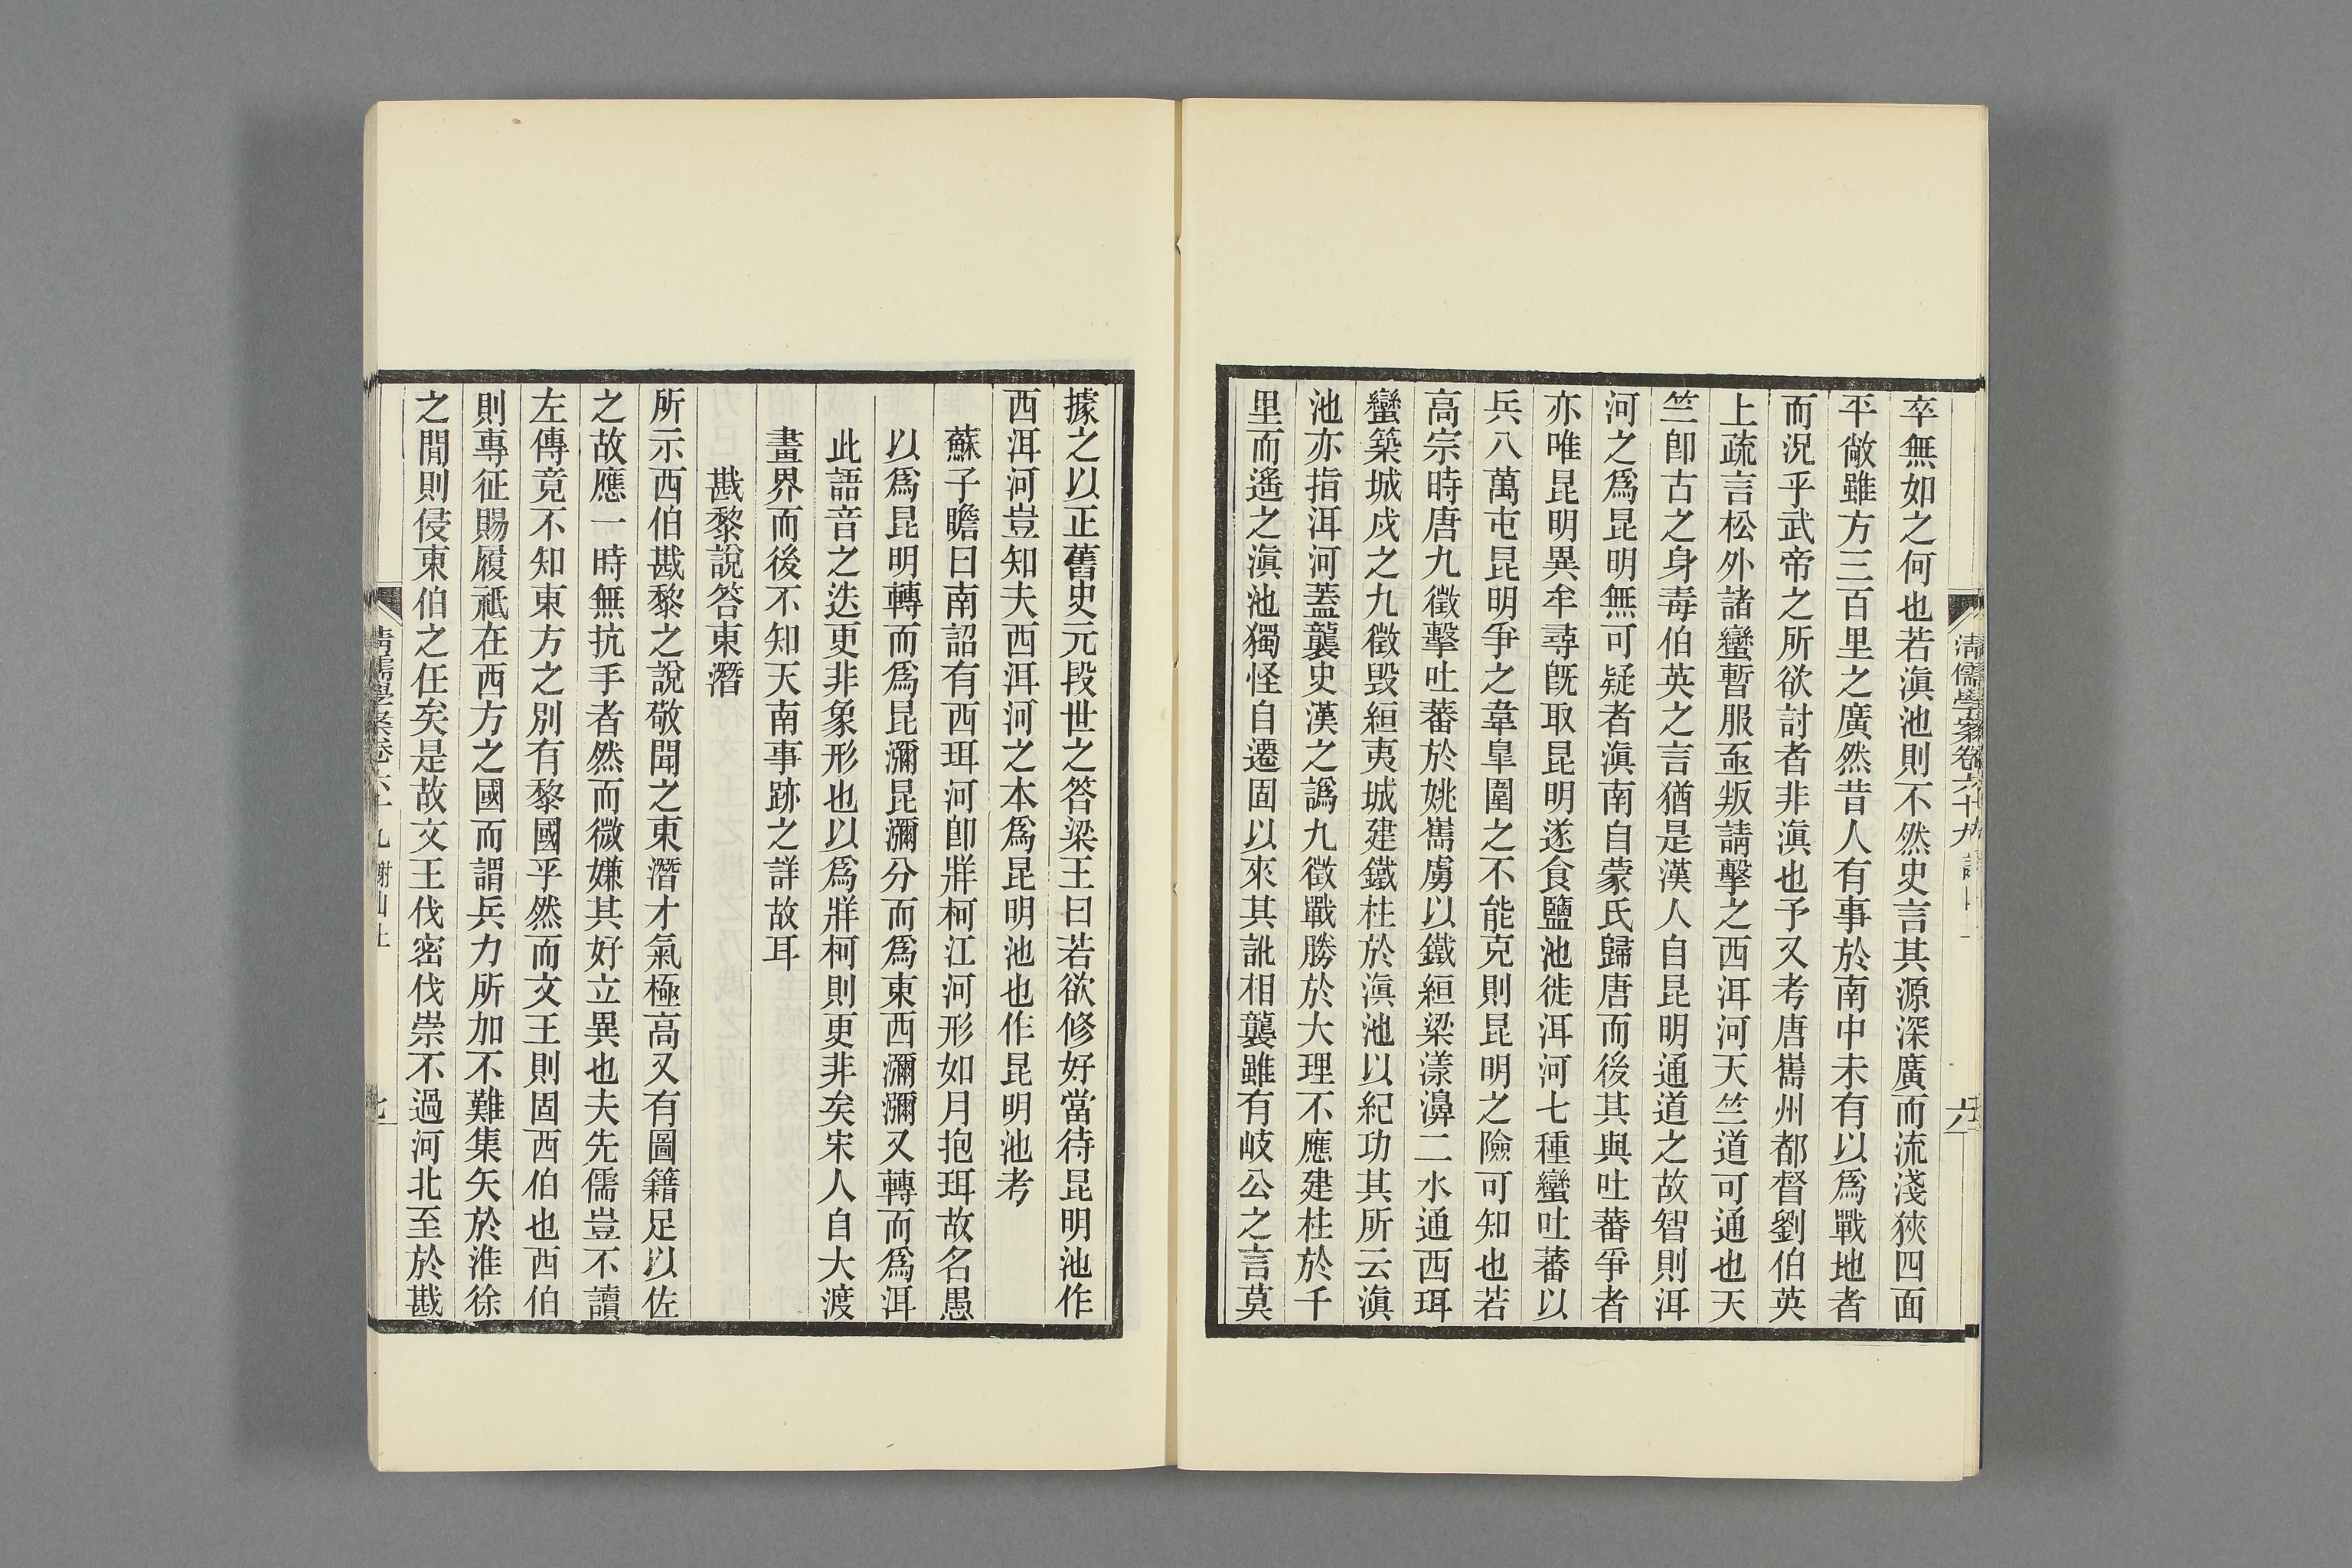 卒無如之何也若滇池則不然史言其源深廣而流淺狹四面
平敞雖方三百里之廣然昔人有事於南中未有以爲戰地者
而況乎武帝之所欲討者非滇也予又考唐雟州都督劉伯英
上疏言松外諸蠻暫服亟叛請擊之西洱河天竺道可通也天
竺卽古之身毒伯英之言猶是漢人自昆明通道之故智則洱
河之爲昆明無可疑者滇南自蒙氏歸唐而後其與吐蕃爭者
亦唯昆明異牟尋旣取昆明遂食鹽池徙洱河七種蠻吐蕃以
兵八萬屯昆明爭之韋臯圍之不能克則昆明之險可知也若
高宗時唐九徵擊吐蕃於姚雟虜以鐵絙梁漾濞二水通西珥
蠻築城戍之九徵毀絙夷城建鐵柱於滇池以紀功其所云滇
池亦指洱河蓋襲史漢之譌九徵戰勝於大理不應建柱於千
里而遙之滇池獨怪自遷固以來其訛相襲雖有岐公之言莫
清儒學案卷六十九
六
據之以正舊史元段世之答梁王曰若欲修好當待昆明池作
西洱河豈知夫西洱河之本爲昆明池也作昆明池考
蘇子瞻曰南詔有西珥河卽牂柯江河形如月抱珥故名愚
以爲昆明轉而爲昆瀰昆瀰分而爲東西瀰瀰又轉而爲洱
此語音之迭更非象形也以爲牂柯則更非矣宋人自大渡
畫界而後不知天南事跡之詳故耳
戡黎說答東潛
所示西伯戡黎之說敬聞之東潛才氣極高又有圖籍足以佐
之故應一時無抗手者然而微嫌其好立異也夫先儒豈不讀
左傳竟不知東方之別有黎國乎然而文王則固西伯也西伯
則專征賜履祗在西方之國而謂兵力所加不難集矢於淮徐
之閒則侵東伯之任矣是故文王伐密伐崇不過河北至於戡
清儒學案卷六十九 謝山上
七